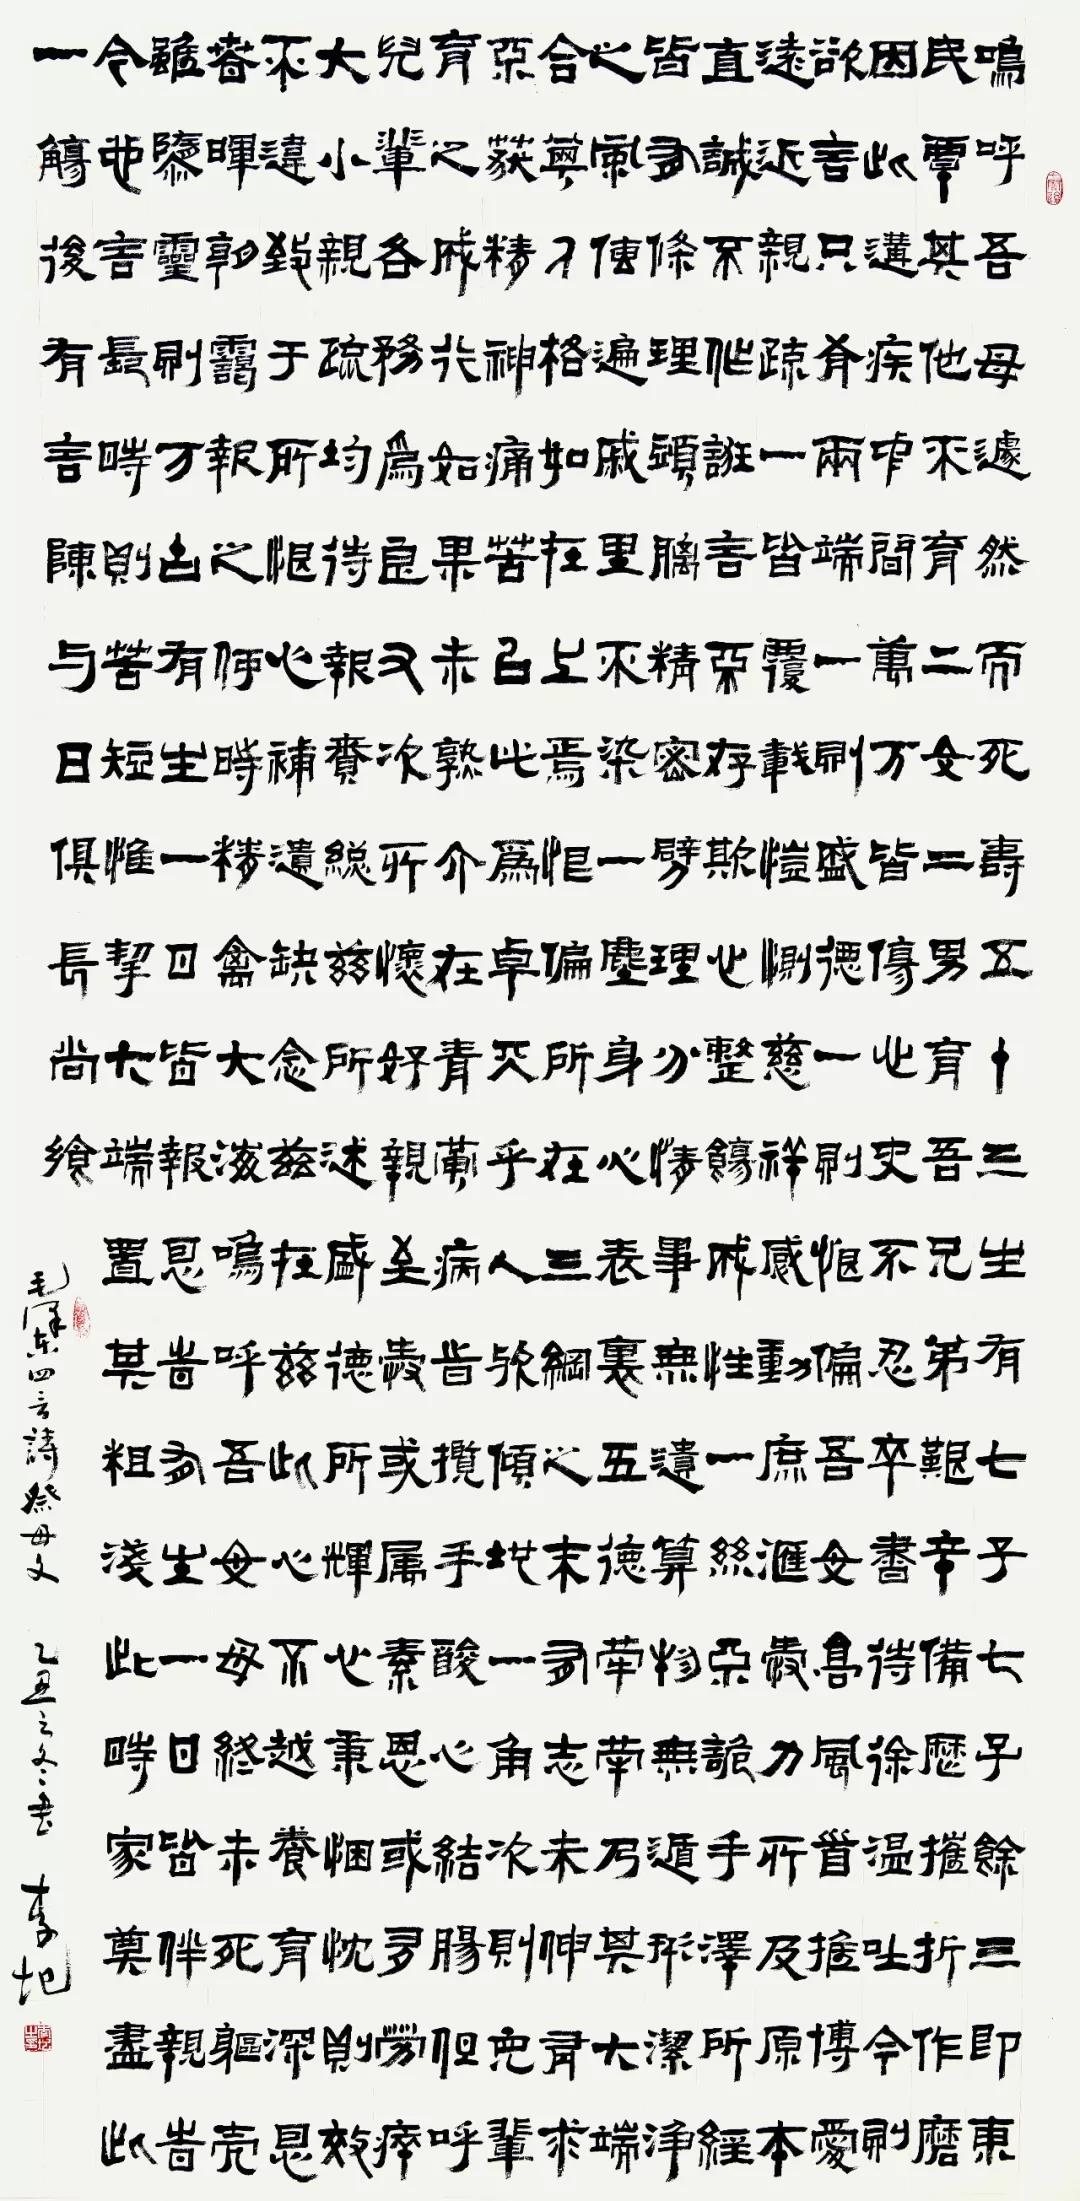 嗚呼吾母遽然而死壽五十三生有七子七子餘三即東
民覃其他不育二女二男育吾兄弟艱辛備歷摧折作磨
因此遘疾中間萬万皆傷心史不忍卒書待徐温吐今則
欲言只有兩端一則盛德一則恨偏吾母高風首推博愛
遠近親疎一皆覆載愷惻慈祥感動庶滙愛力所及原本
直誠不作誑言不存欺心整飭成性一絲不詭手澤所經
皆有條理頭腦精密劈理分情事無遺算物無遁形潔淨
之風傳遍戚里不染一塵身心表裏五德犖犖乃其大端
合其人格如在上焉恨偏所在三綱之末有志未伸有求
不獲精神痛苦以此為卓天乎人欤傾地一角次則兒輩
育之成行如果未熟介在青黄病時攬手酸心結腸但呼
兒輩各務為良又次所懷好親至愛或属素恩或多勞瘁
大小親疏均待報賚總兹所述盛德所輝必秉悃忱則效
不違致于所恨必補遺缺念兹在兹此心不越養育深恩
春暉朝靄報之何時精禽大海嗚呼吾母母終未死軀壳
雖隳靈則万古有生一日皆報恩時有生一日皆伴親時
今也言長時則苦短惟挈大端置其粗淺此時家奠盡此
一觴後有言陳与日俱長尚飨
毛澤東四言詩祭母文 乙丑之冬書 李圯